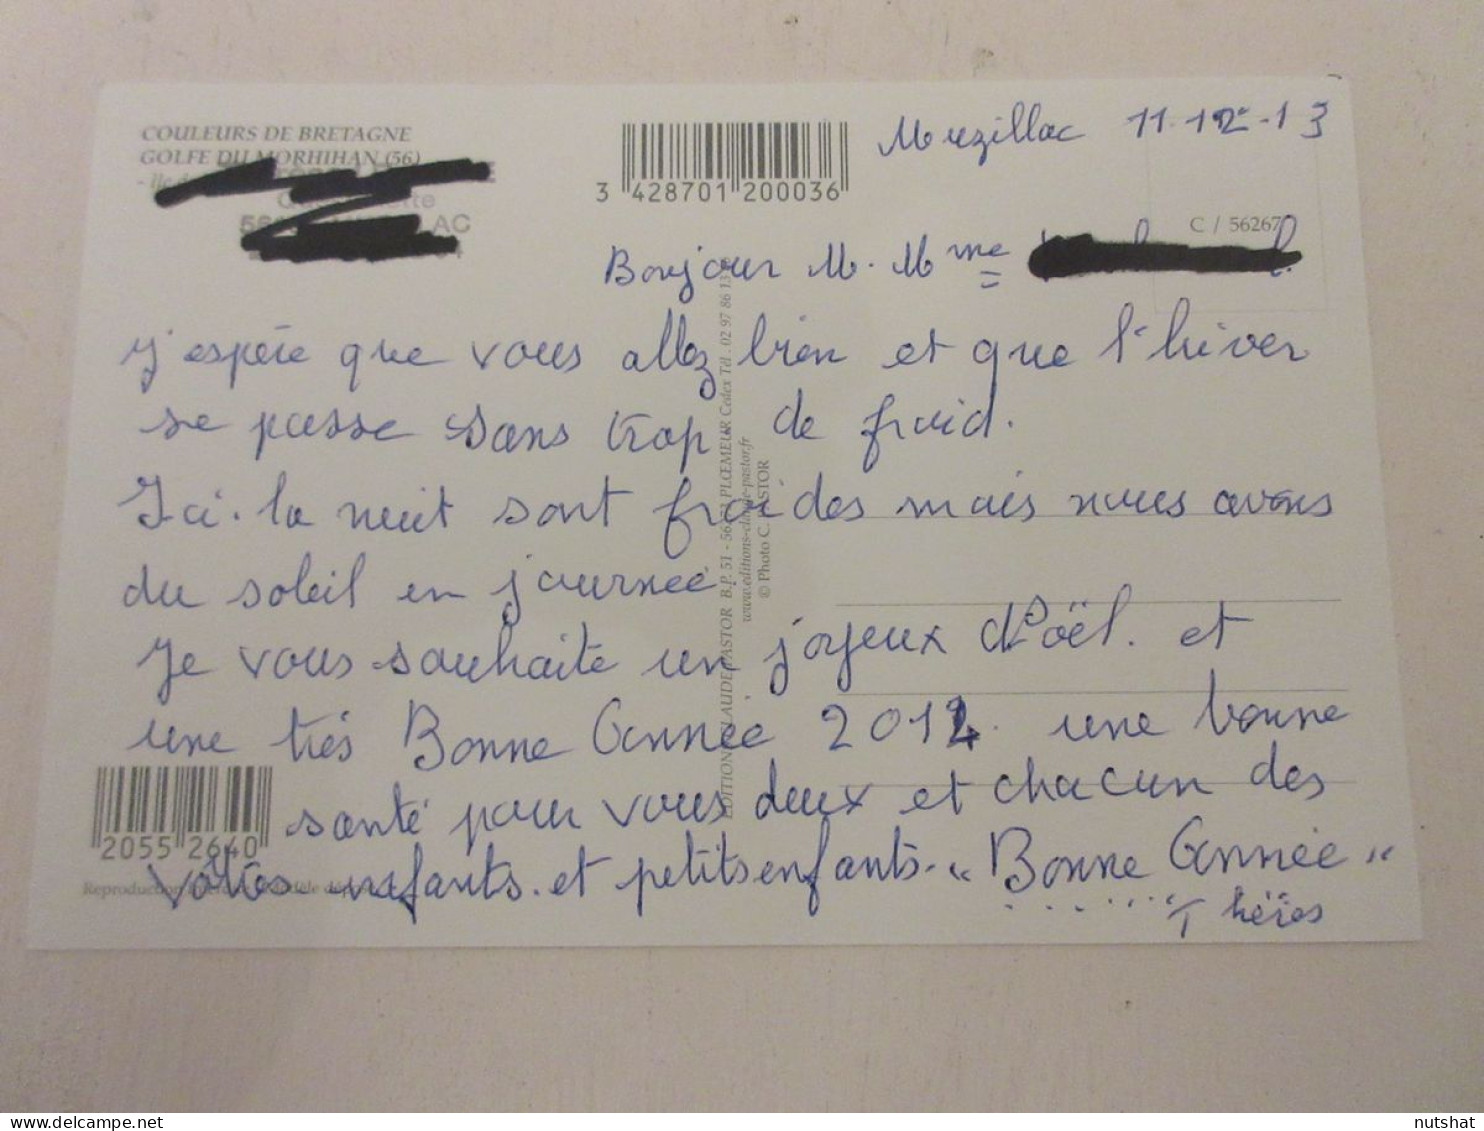 COULEURS DE BRETAGNE
GOLFE DU MORHIHAN (56)
AC
3 428701 200036
Muzillac 11-12-13
C / 56267
Bonjour M. Mme
J'espère que vous allez bien et que l'hiver
se passe sans trop de froid.
Ici la nuit sont froides mais nous avons
du soleil en journée
Je vous souhaite un joyeux Noël. et
une très Bonne Année 2014. une bonne
santé pour vous deux et chacun des
vôtres enfants. et petits enfants. "Bonne Année"
Thérès
EDITIONS CLAUDE PASTOR B.P. 51 - PLŒMEUR Cedex Tél. 02 97 86 13
www.editions-claude-pastor.fr
© Photo C. PASTOR
2055 2640
Reproduction
delcampe.net
nutshat